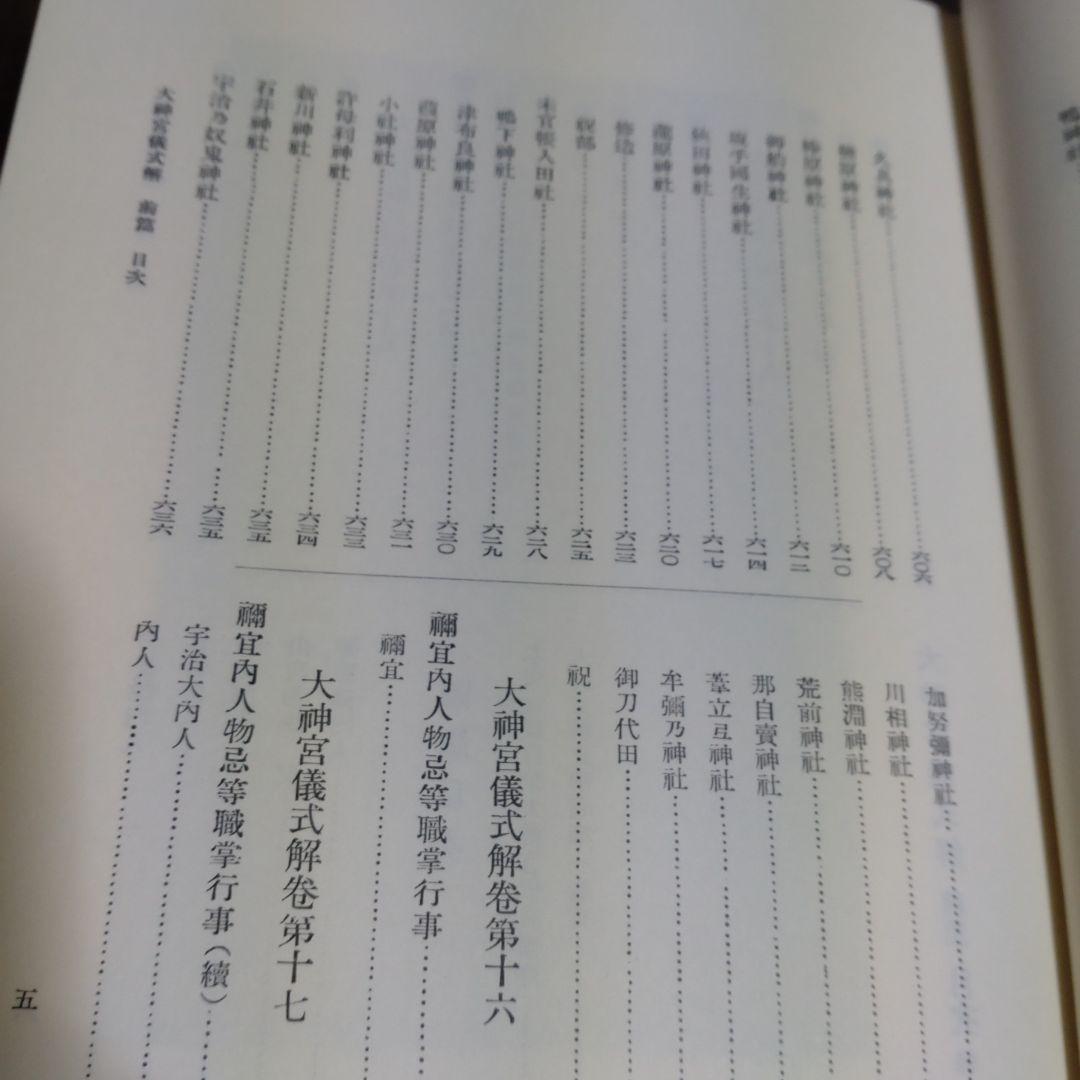 久具神社……六〇六
楢原神社……六〇八
榛原神社……六一〇
御船神社……六一二
坂手國生神社……六一四
狹田神社……六一七
瀧原神社……六二〇
修造……六二三
祝部……六二五
未官帳入田社……六二八
鴨下神社……六二九
津布良神社……六三〇
葭原神社……六三一
小社神社……六三三
許母利神社……六三四
新川神社……六三五
石井神社……六三五
宇治乃奴鬼神社……六三六
加努彌神社……
川相神社……
熊淵神社……
荒前神社……
那自賣神社……
葦立弖神社……
牟彌乃神社……
御刀代田……
祝……
大神宮儀式解卷第十六
禰宜內人物忌等職掌行事……
禰宜……
大神宮儀式解卷第十七
禰宜內人物忌等職掌行事(續)……
宇治大內人……
內人……
大神宮儀式解 前篇 目次
五